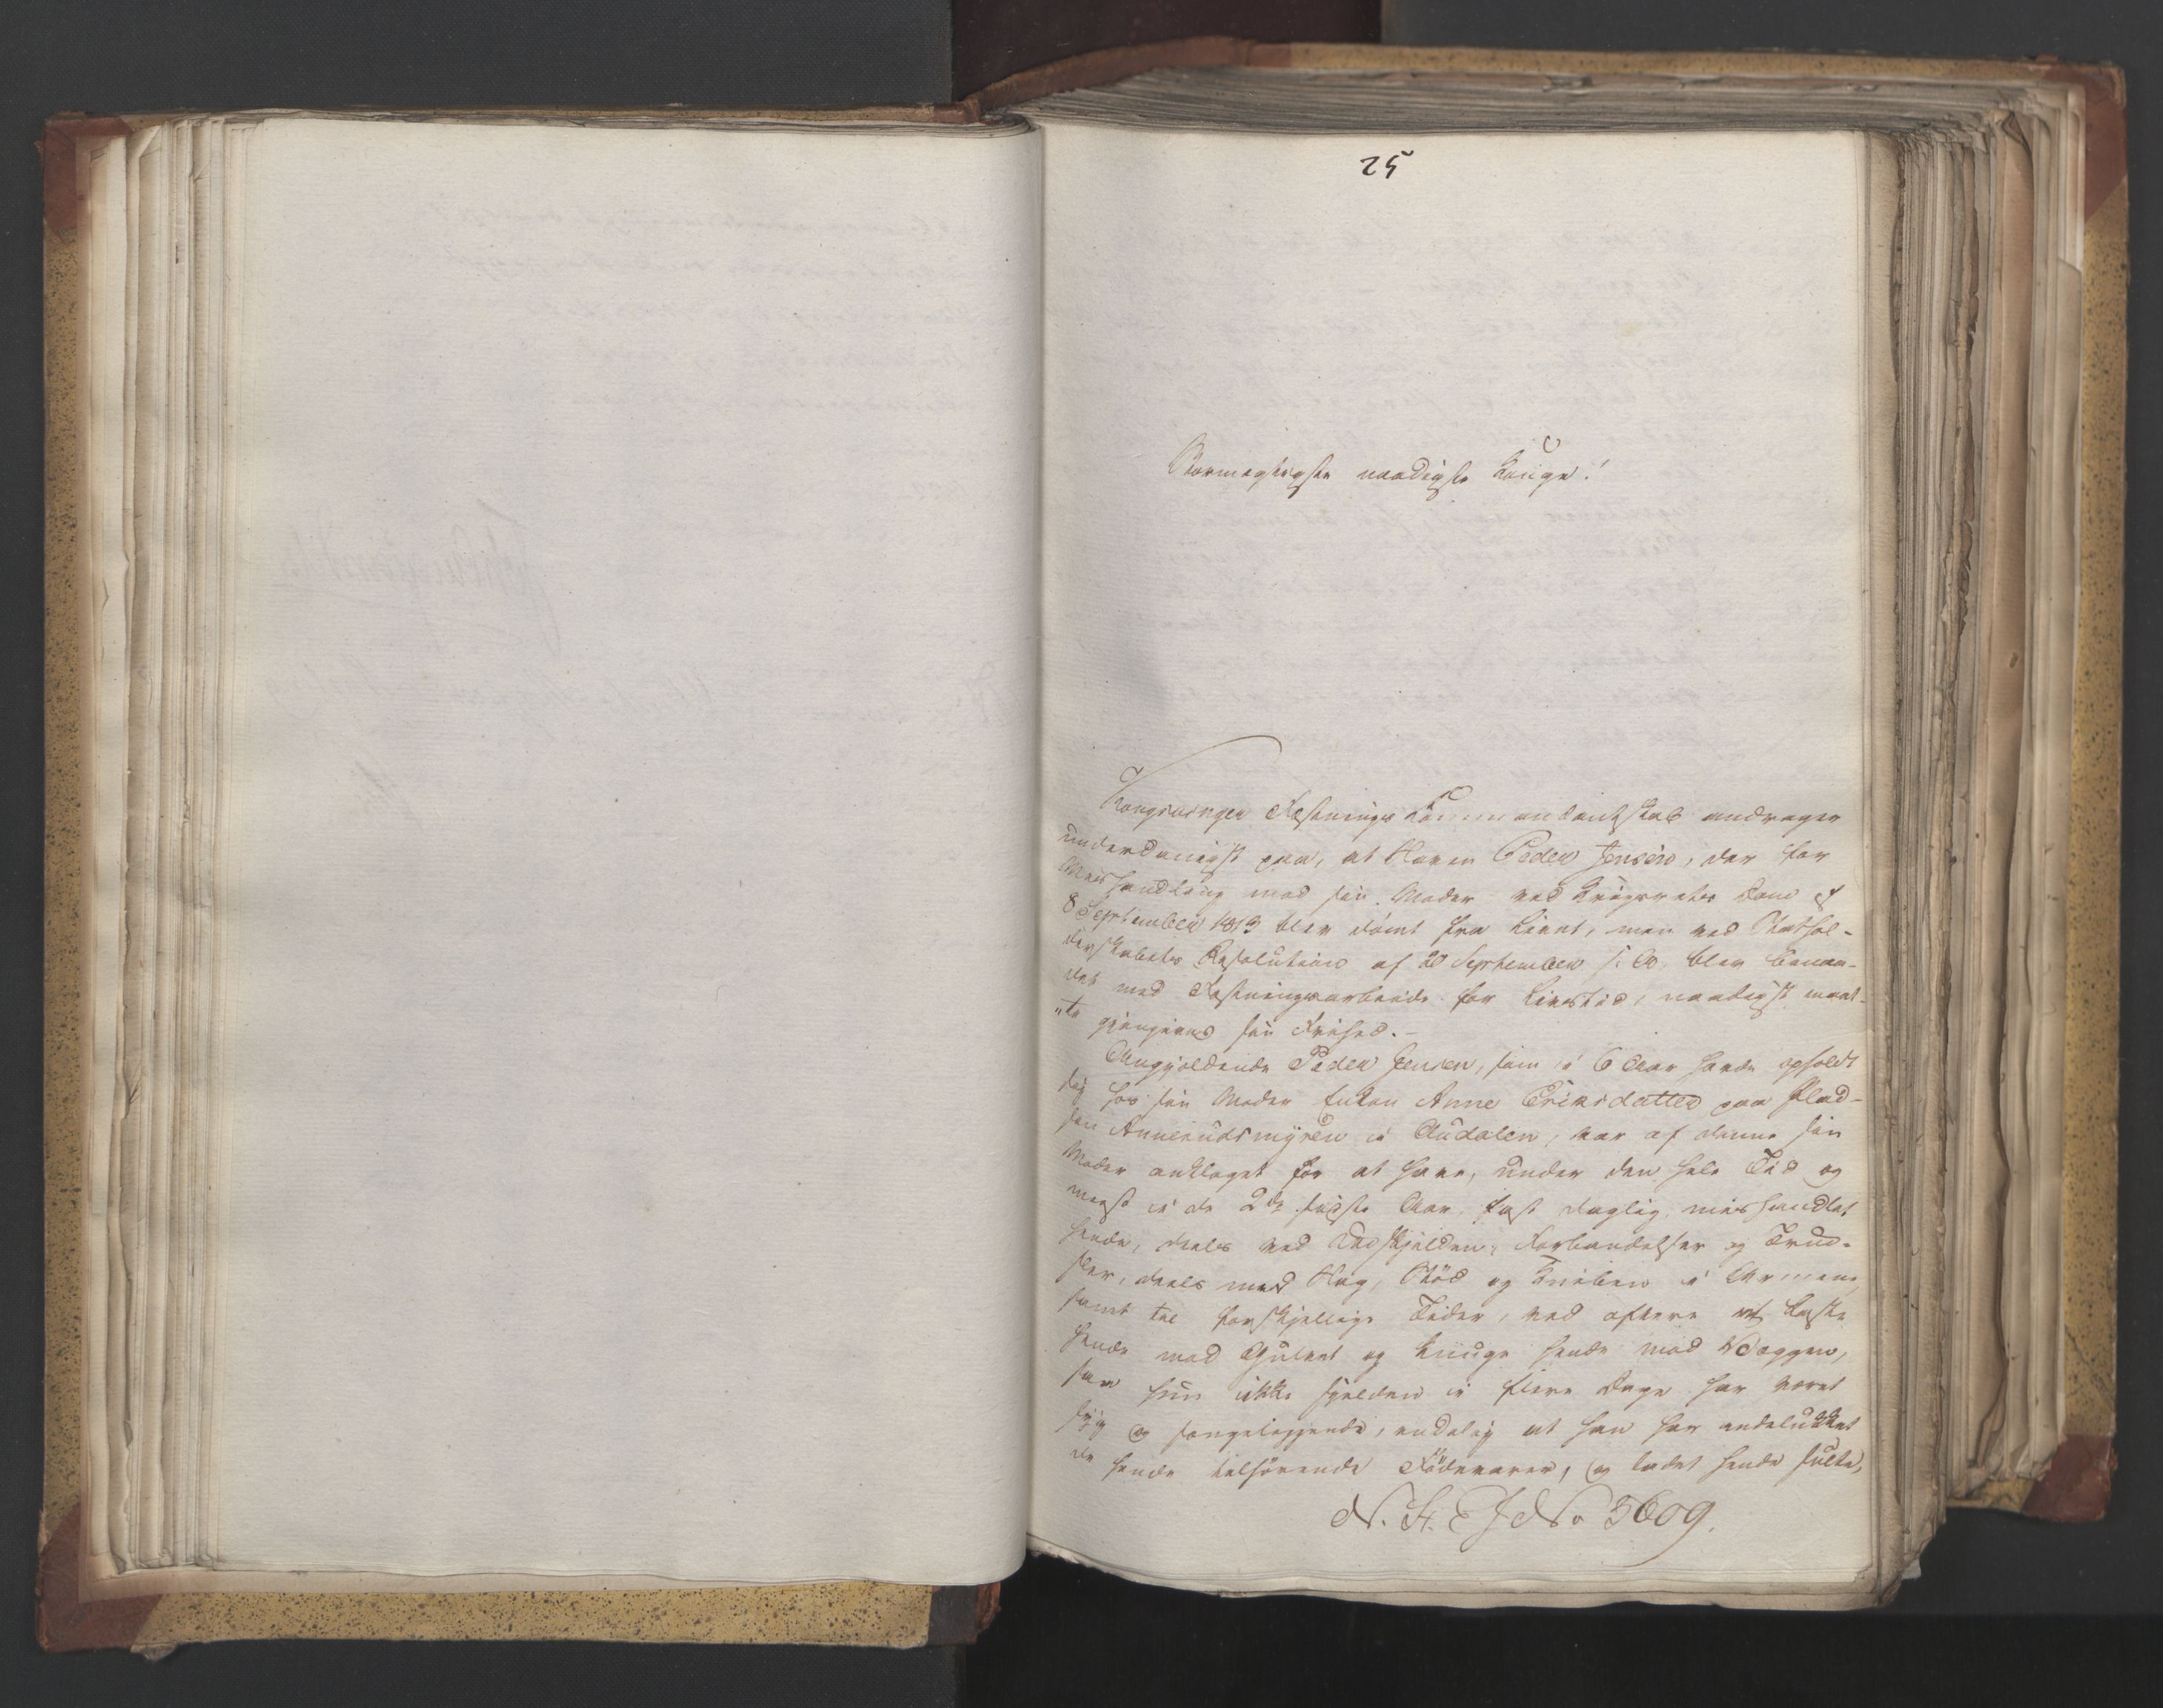 25
Stormægtigste naadigste Konge!
Kongsvinger Fæstnings Kommandantskab andrager
underdanigst paa, at Slaven Peder Jensen, der for
Mishandling mod sin Moder ved Krigsrettes Dom af
8 September 1813 blev dömt fra Livet, men ved Stathol-
derskabets Resolution af 20 September s: A: blev benaa-
det med Fæstningsarbeide for Livstid, naadigst maat-
"te gjengives sin Frihed.-
Angjældende Peder Jensen, som i 6 Aar havde opholdt
sig hos sin Moder Enken Anne Eriksdatter paa Plad-
sen Annerudsmyren i Audalen, var af denne sin
Moder anklaget for at have, under den hele Tid og
mest i de 2de sidste Aar, fast daglig mishandlet
hende, deels ved Udskjelden, Forbandelser og Trud-
sler, deels med Slag, Stöd og Kniben i Armene
samt til forskjellige Tider, ved oftere at kaste
hende mod Gulvet og klinge hende mod Væggen,
saa hun ikke sjelden i flere Dage har været
syg og sengeliggende, endelig at han har aflukket
de hende tilhörende Födevarer, og ladet hende sulte,
N. St. E J No 3609.